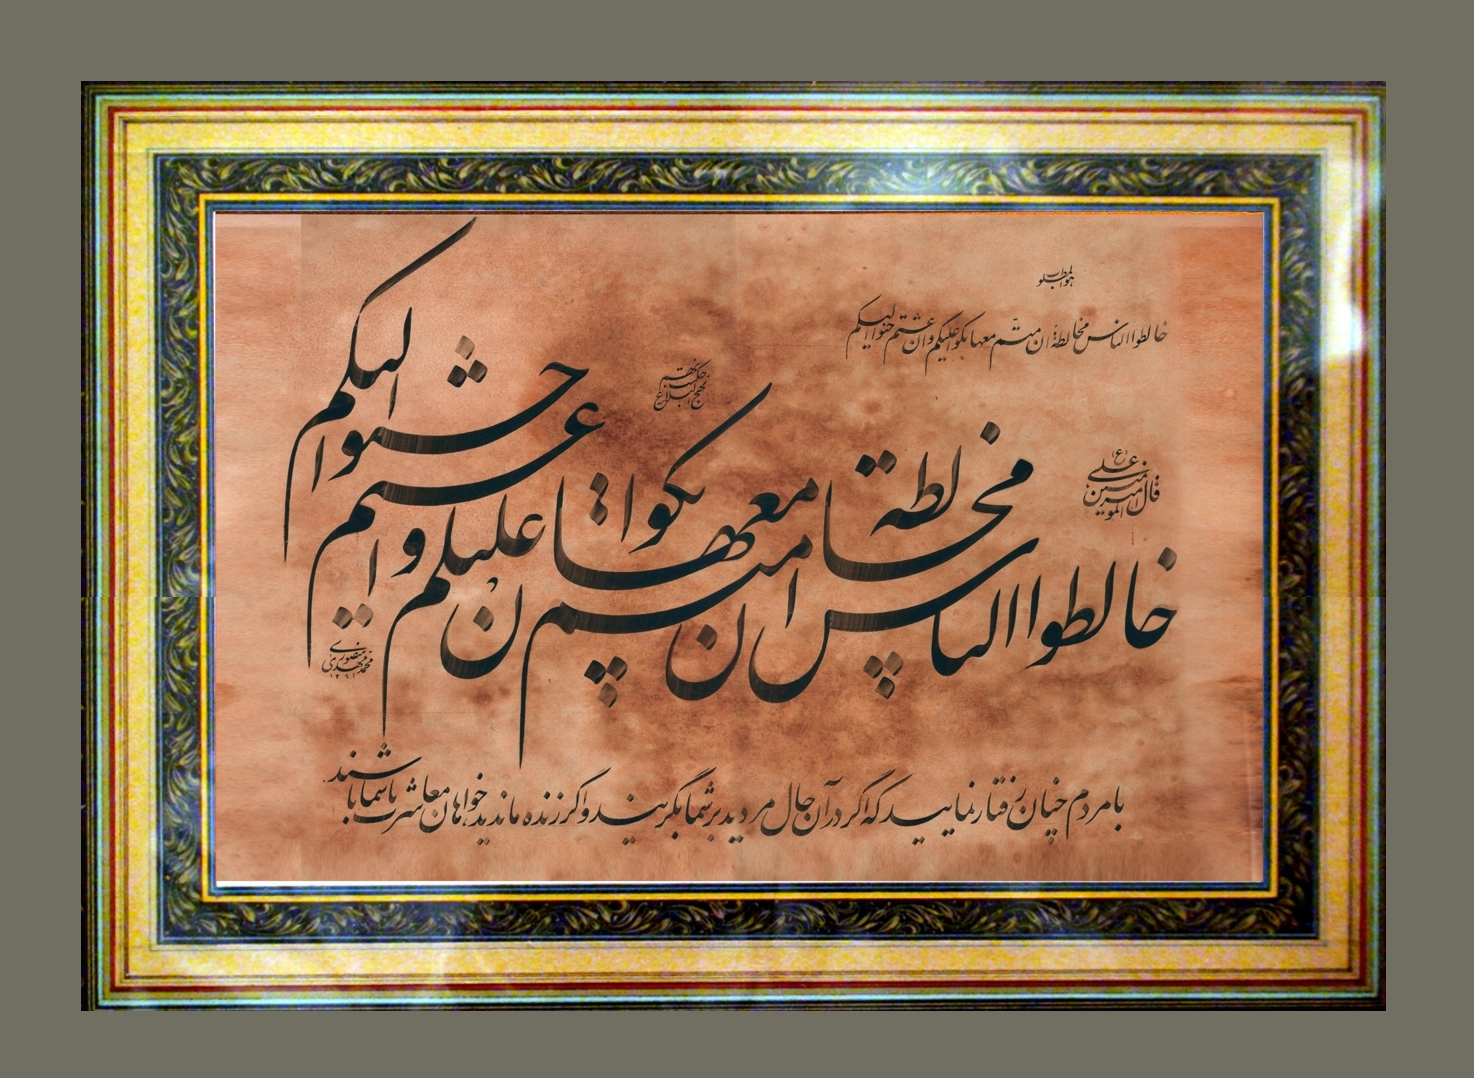 هوالمطلوب
خالطوا الناس مخالطة ان متم معها بکوا علیکم و ان عشتم حنوا الیکم
قال امیر المومنین علی (ع)
حکمت نهم
نهج البلاغه
خالطوا الناس مخالطة ان متم معها بکوا علیکم و ان عشتم حنوا الیکم
محمد مهدی منصوری
۱۳۹۱
با مردم چنان رفتار نمایید که اگر در آن حال مردید بر شما بگریند و اگر زنده ماندید خواهان معاشرت با شما باشند